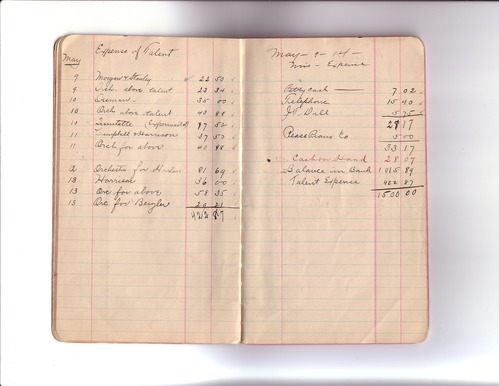 Expense of Talent
May
9 Morgan & Stanley 22 50
9 Orch. above talent 23 34
10 35 00
10 Orch above talent 40 88
11 (Experimental) 97 52
11 Campbell & Harrison 37 57
11 Orch for above 40 88
2 Orchestra for 81 69
13 Harrison 36 00
13 Orc for above 58 35
15 Orc for Bergler 29 21
422 87
May - 9 - 14 -
Mis - Expense
Petty cash 7 02
Telephone 15 40
J.P. Dall 5 75
28 17
Pease Piano Co 5 00
33 17
Cash on Hand 28 07
Balance in Bank 1015 89
Talent Expense 422 87
1500 00